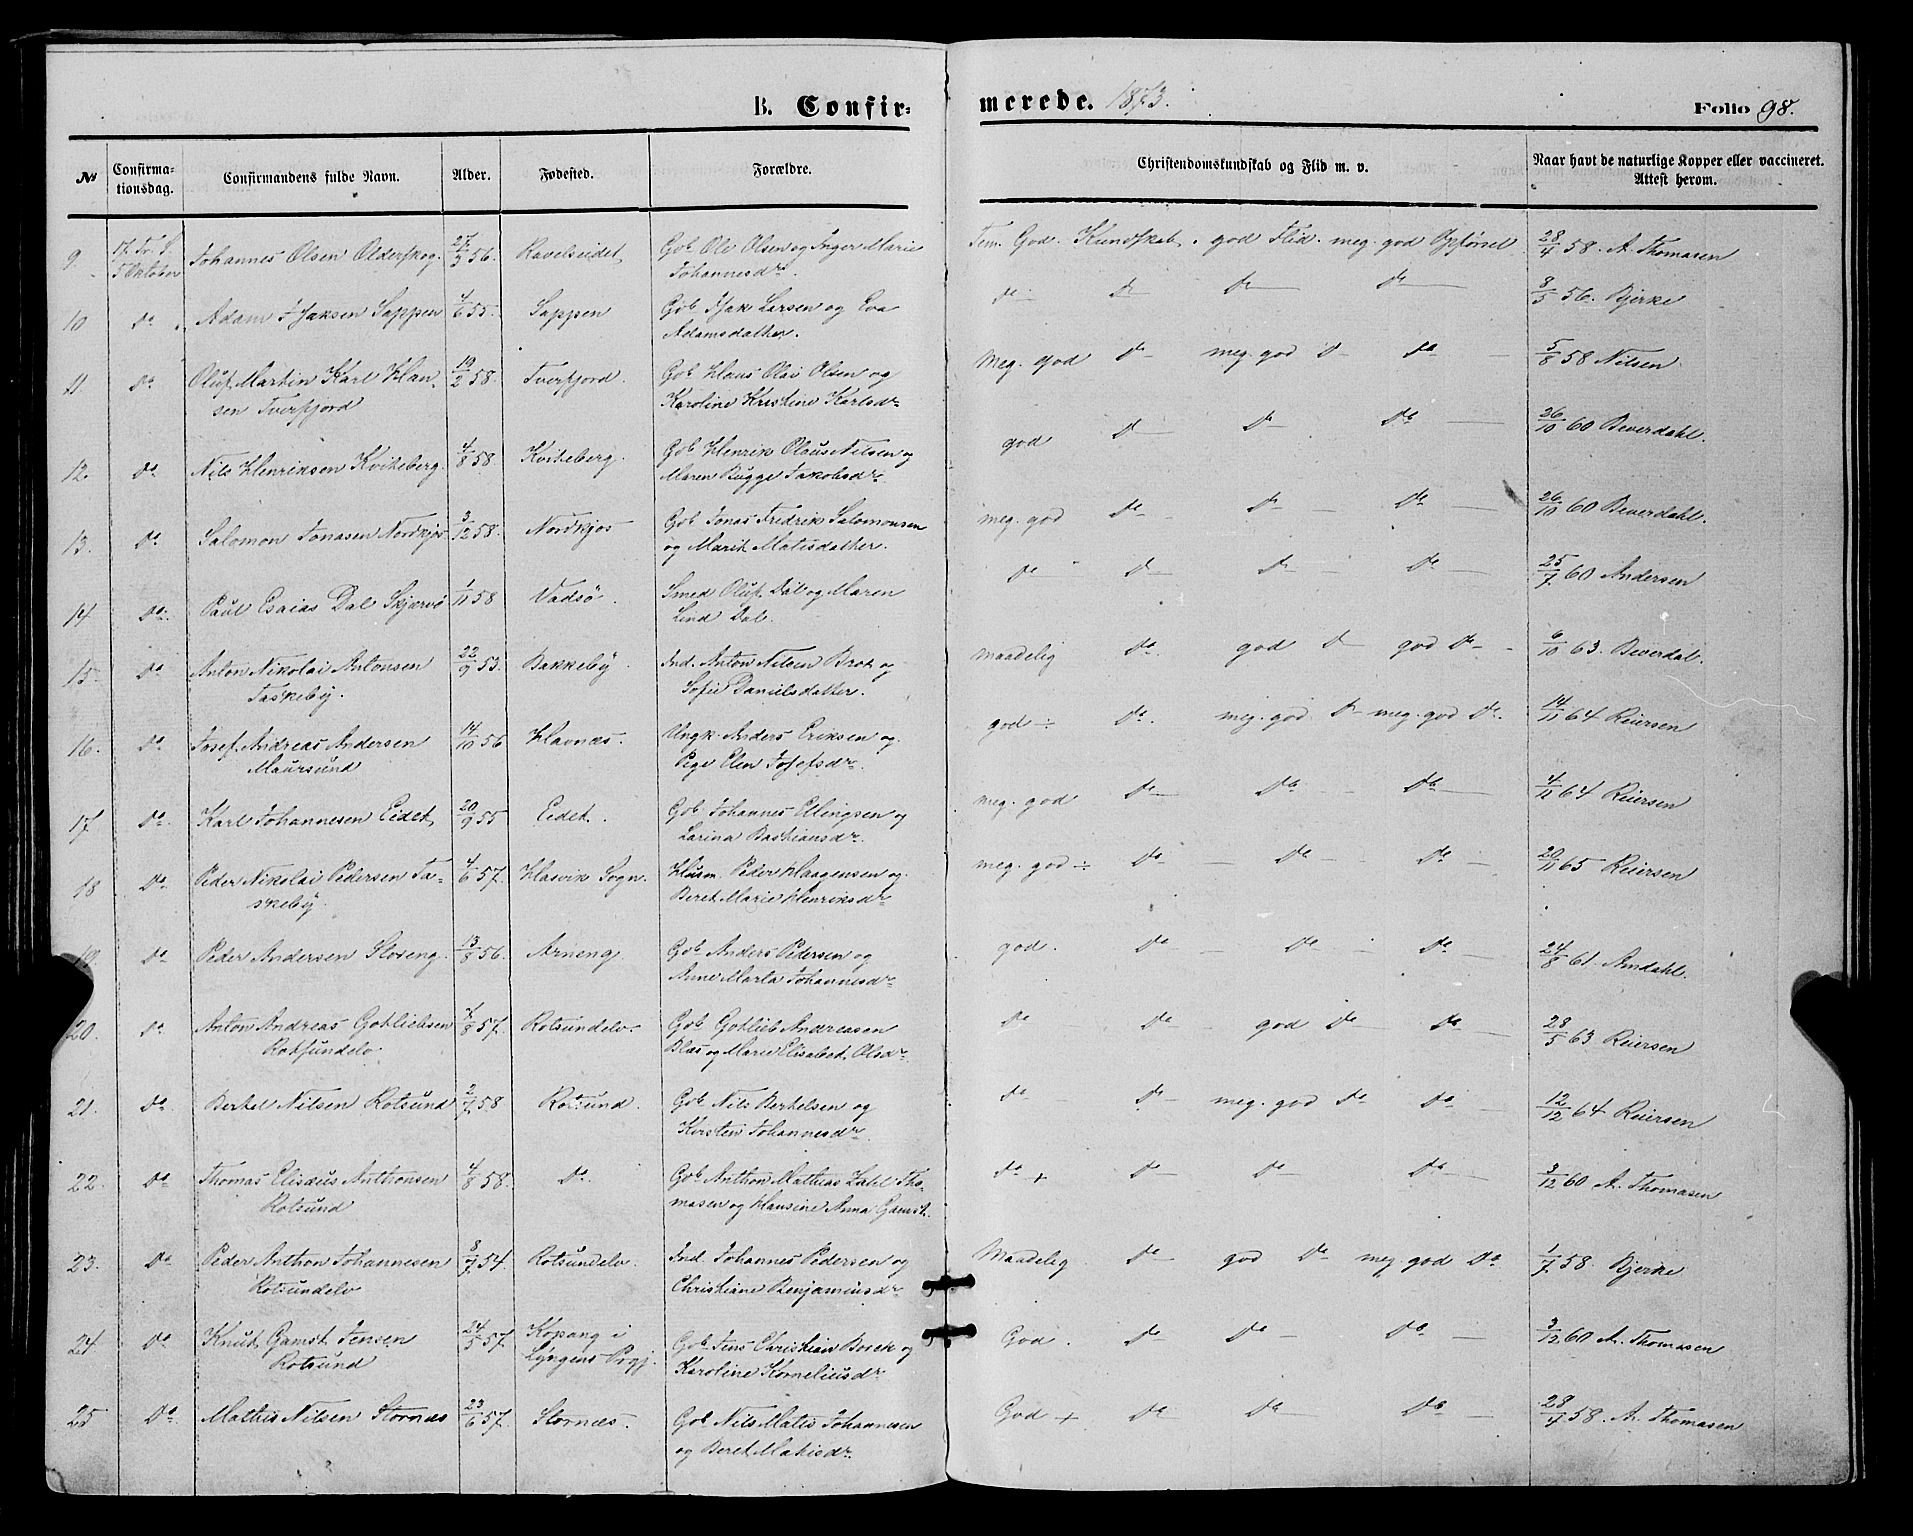 B. Confirmerede. 1873. Folio 98.
No Confirmationsdag. Confirmandens fulde Navn. Alder. Fødested. Forældre. Christendomskundskab og Flid m. v. Naar havt de naturlige Kopper eller vaccineret. Attest herom.
9. 17. Tr. S. 5 Oktober Johannes Olsen Olderskog. 56. Ravelseidet Gb Ole Olsen og Inger Marie Tem. God. Kundskab. god Flid. meg. god Opførsel 28/4 58 A. Thomasen
Johannesdr.
10 Do Adam Isaksen Sappen 4/6 55. Sappen Gb Isak Larsen og Eva Do Do Do Do 8/5 56. Bjerke
Adamsdatter.
11 Do Oluf Martin Karl Han- 19/2 58. Tverfjord. Gb Hans Olai Olsen og Meg. god Do meg. god Do Do 5/8 58 Nilsen
sen Tverfjord Karoline Kristine Karlsdr
12. Do Nils Henriksen Kviteberg. 4/8 58. Kviteberg. Gb Henrik Olaus Nilsen og god Do Do Do 26/10 60 Beverdahl.
Maren Bugge Jakobsdr
13. Do Salomon Jonasen Nordkjos 3/12 58. Nordkjos Gb Jonas Fredrik Salomonsen meg. god Do Do Do 26/10 60 Beverdahl.
og Marit Matisdatter.
14 Do. Paul Esaias Dal Skjervø 1/11 58 Vadsö. Smed Oluf Dal og Maren Do Do Do Do 25/7 60 Andersen
Lind Dal.
15. Do Anton Nikolai Antonsen 22/9 53. Bakkeby. Ind. Anton Nilsen Brot og maadelig Do. god Do god Do 6/10 63. Beverdal.
Taskeby. Sofie Danielsdatter.
16. Do Josef Andreas Andersen 14/10 56 Havnæs. Ungk. Anders Eriksen og god ÷ Do. meg. god Do meg. god Do. 14/11 64 Reiersen
Maursund Pige Elen Josefsdr.
17 Do. Karl Johannesen Eidet 20/9 55 Eidet. Gb Johannes Ellingsen og meg. god Do Do Do 4/11 64 Reiersen
Larina Bastiansdr.
18 Do. Peder Nikolai Pedersen Ta- 4/6 57. Hasvik Sogn. Husm. Peder Haagensen og meg. god ÷ Do Do Do 20/11 65 Reiersen
skeby. Beret Marie Henriksdr
19. Do Peder Andersen Storeng. 13/8 56. Arneng Gb Anders Pedersen og god. Do Do Do 24/8 61. Amdahl.
Anne Marta Johannesdr
20. Do Anton Andreas Gotliebsen 57. Rotsundelv. Gb Gotlieb Andreasen Do Do god Do Do 28/5 63 Reiersen
Rotsundelv Blæs og Marie Elisabet Olsdr.
21. Do. Bertel Nilsen Rotsund 2/7 58 Rotsund. Gb Nils Bertelsen og Do Do meg. god Do Do 12/12 64 Reiersen
Kirsten Johannesdr.
22. Do Thomas Elisæus Anthonsen 4/8 58. Do. Gb Anthon Mathias Tho- Do + Do Do Do 3/12 60 A. Thomasen
Rotsund masen og Hansine Anna Gamst.
23. Do Peder Anthon Johannesen 8/7 54. Rotsundelv. Ind. Johannes Pedersen og Maadelig Do god Do meg. god Do 1/7 58. Bjerke
Rotsundelv Christiane Benjaminsdr
24. Do Knut Gamst Jensen 24/5 57. Kopang i Gb Jens Christian Borck og God. Do Do Do 3/12 60 A. Thomasen
Rotsund Lyngens Prgj. Karoline Korneliusdr
25 Do Mathis Nilsen Stornæs 23/6 57. Stornæs. Gb Nils Matis Johannesen God + Do Do Do 28/4 58. A. Thomasen
og Beret Matisdr.